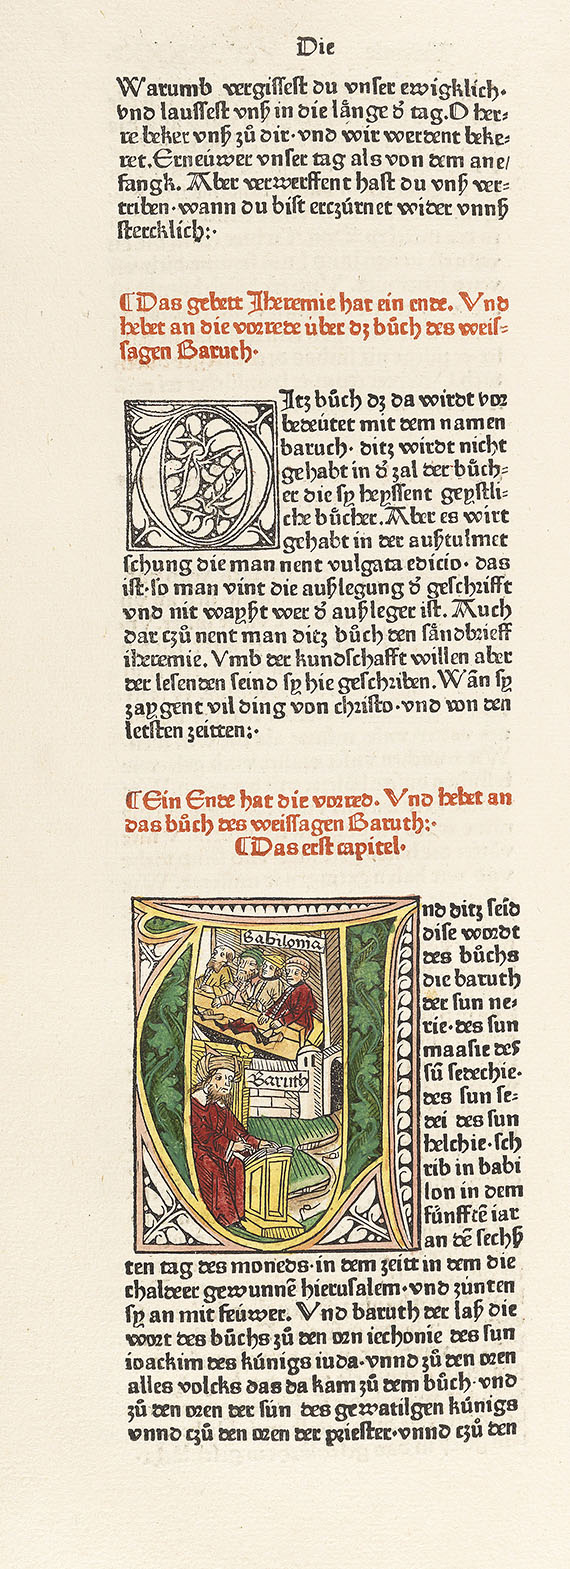 Die
Warumb vergissest du vnser ewigklich.
vnd laussest vnß in die långe dˢ tag. O her-
re beker vnß zů dir·vnd wir werdent beke-
ret. Erneúwer vnser tag als von dem ane/
fangk. Aber verwerffent hast du vnß ver-
triben·wann du bist erczúrnet wider vnnß
stercklich:·
¶Das gebett Iheremie hat ein ende. Vnd
hebet an die vorrede úber dz bůch des weis-
sagen Baruch·
Itz bůch dz da wirdt vor
bedeútet mit dem namen
baruch· ditz wirdt nicht
gehabt in dˢ zal der bůch-
er die sy heyssent geystli-
che bůcher. Aber es wirt
gehabt in der außtulmet
schung die man nent vulgata edicio· das
ist·so man vint die außlegung dˢ geschrifft
vnd nit wayßt wer dˢ außleger ist. Auch
dar czů nent man ditz bůch den såndbrieff
iheremie. Vmb der kundschafft willen aber
der lesenden seind sy hie geschriben. Wãn sy
zaygent vil ding von christo·vnd von den
letsten zeitten:·
¶Ein Ende hat die vorred. Vnd hebet an
das bůch des weissagen Baruch:·
¶Das erst capitel·
Babilonia
Baruth
nd ditz seid
dise wordt
des bůchs
die baruch
der sun ne-
rie·des sun
maasie des
sũ sedechie·
des sun se-
dei des sun
helchie·sch
rib in babi
lon in dem
fúnfftẽ iar
an dẽ sechß
ten tag des moneds·in dem zeitt in dem die
chaldeer gewunnẽ hierusalem·vnd zúnten
sy an mit feúwer. Vnd baruch der laß die
wort des bůchs zů den orn iechonie des sun
ioackim des kúnigs iuda·vnnd zů den oren
alles volcks das da kam zů dem bůch·vnd
zů den oren der sún des gewatilgen kúnigs
vnnd czů den oren der priester·vnnd czů den